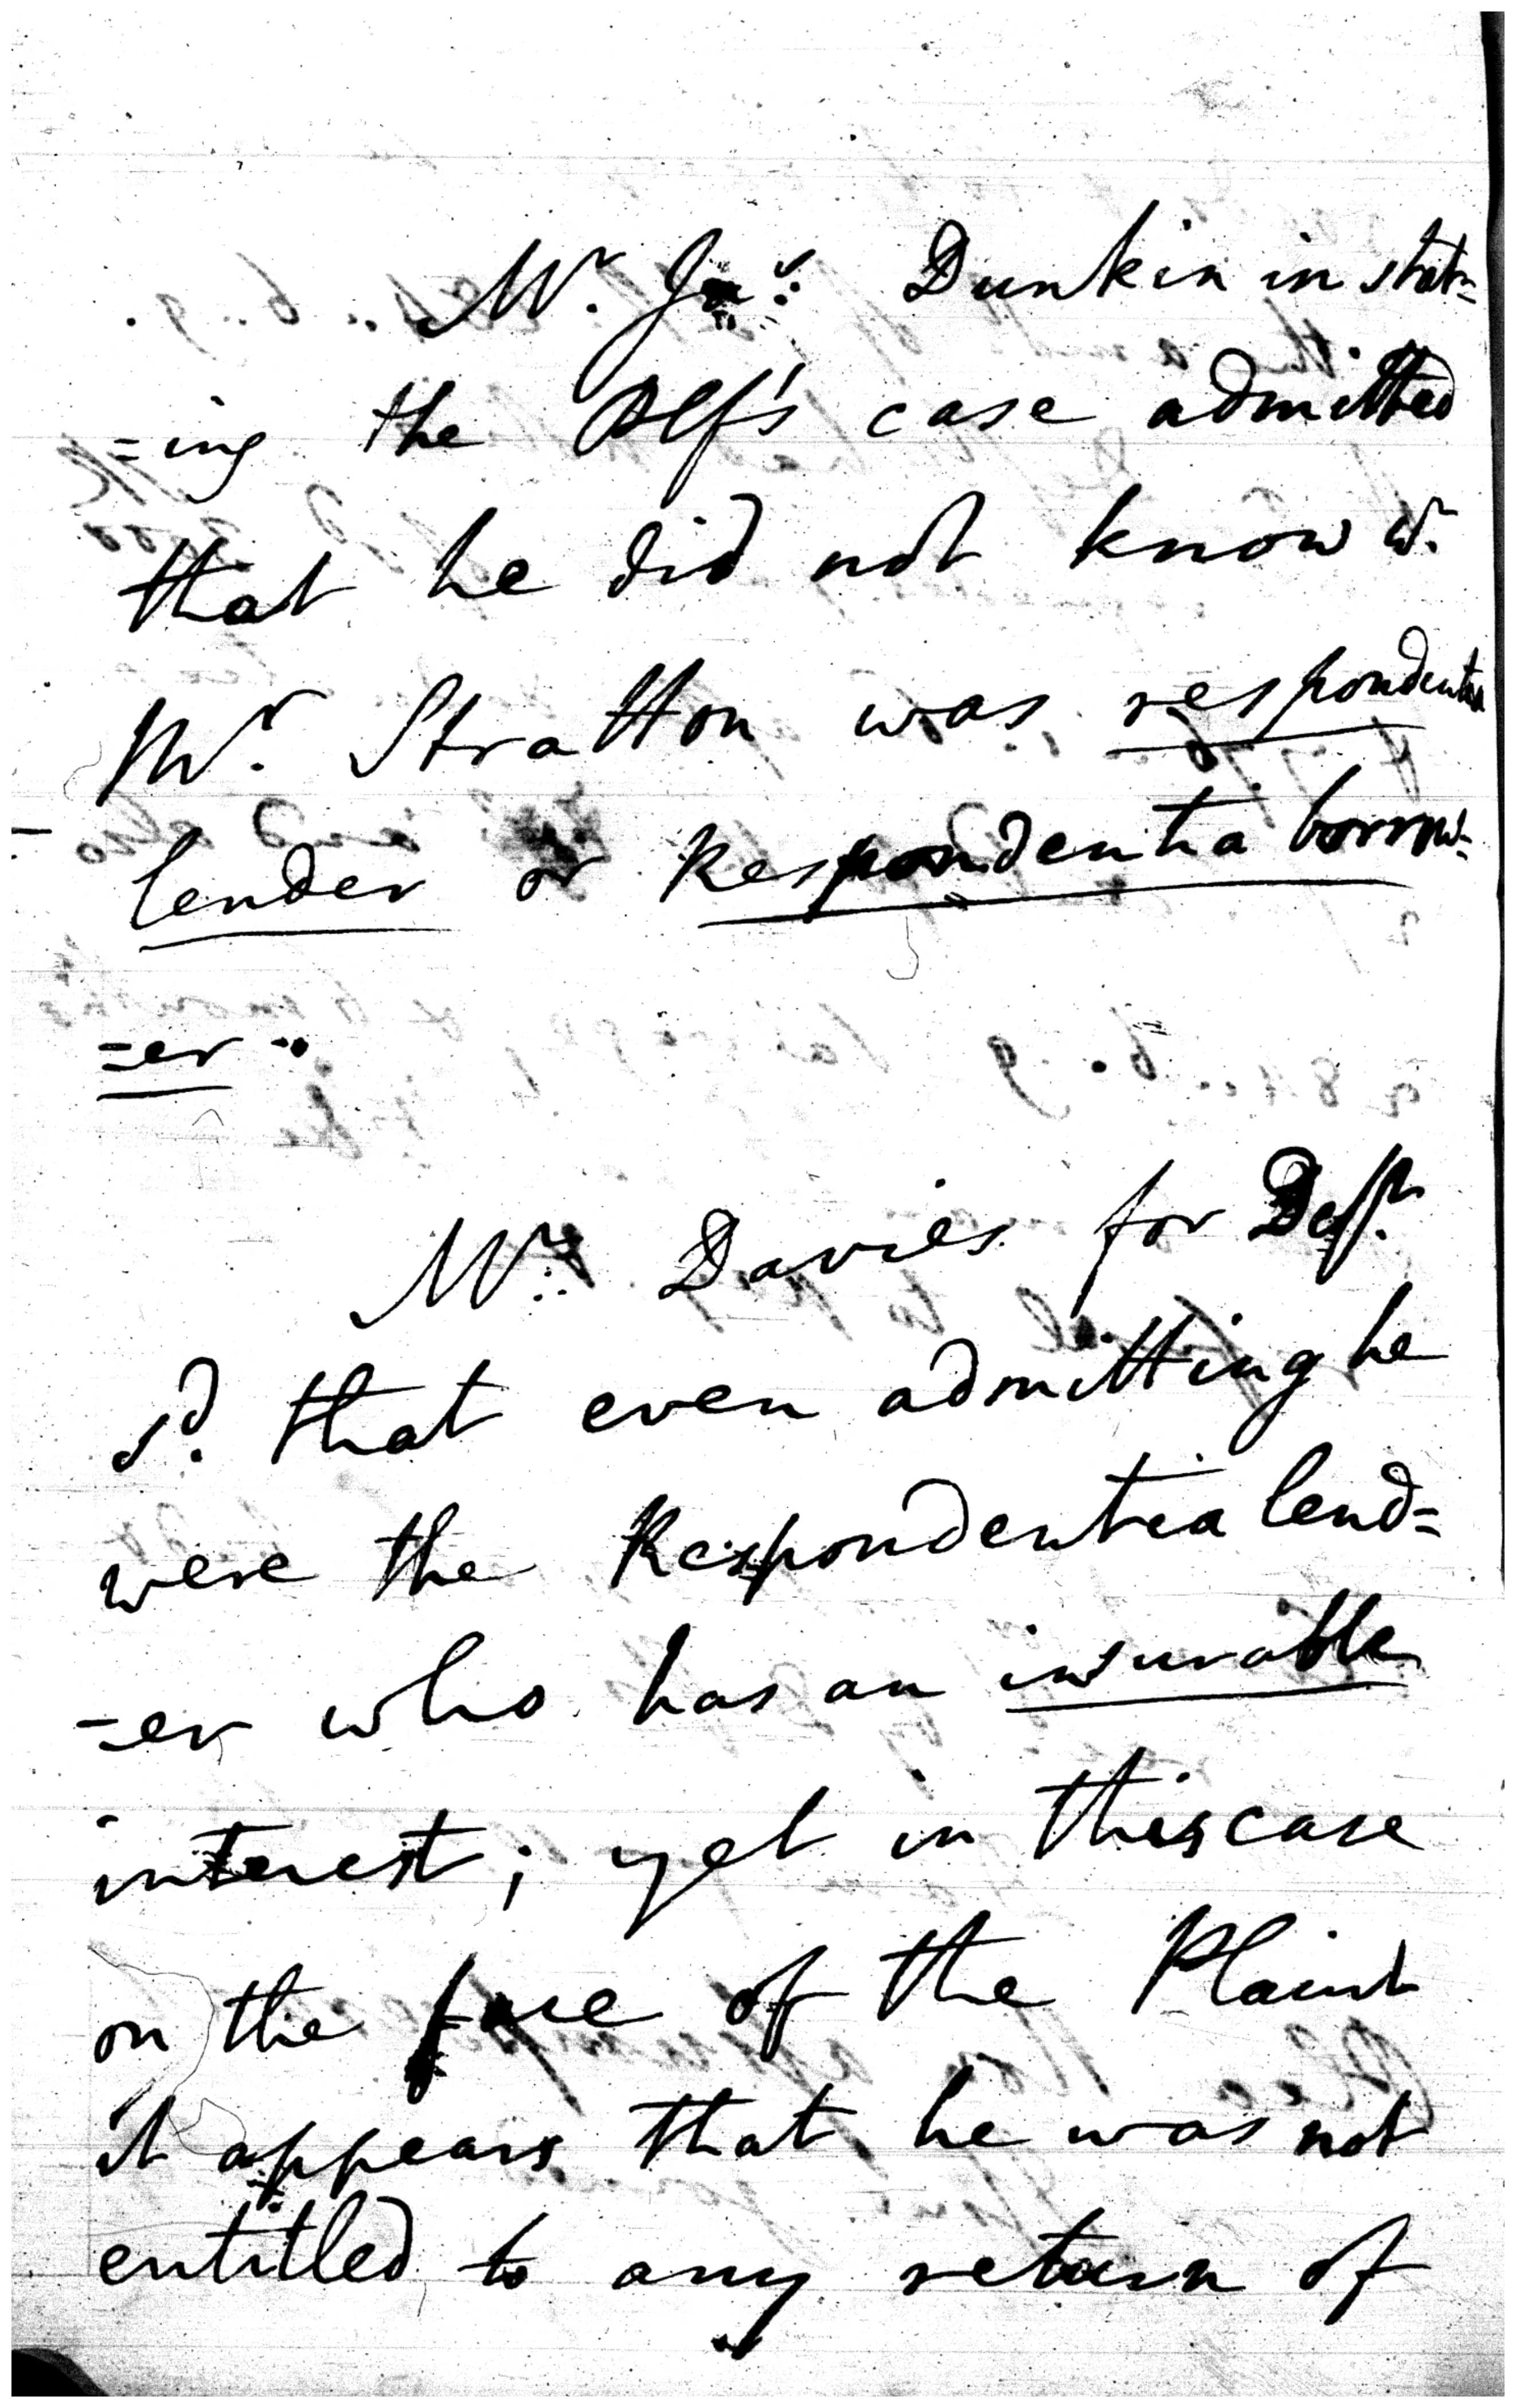 Mr. Jas: Dunkin in stat=
=ing the Plf's case admitted
that he did not know wr.
Mr. Stratton was respondentia
lender or Respondentia borrow=
=er..
Mr. Davies for Deft.
sd. that even admitting he
were the Respondentia lend=
=er who has an insurable
interest; yet in this case
on the face of the Plaint
it appears that he was not
entitled to any return of